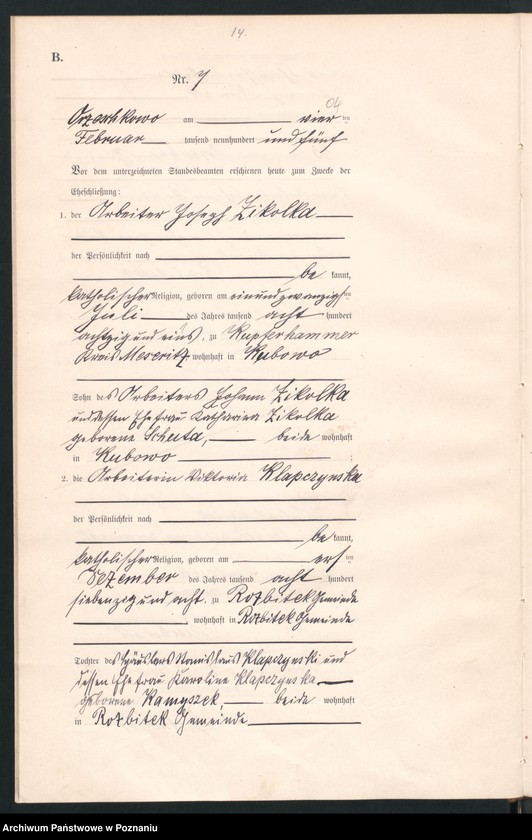 14.
B.
Nr. 7
Orzeschkowo am vierten
04
Februar tausend neunhundert und fünf
Vor dem unterzeichneten Standesbeamten erschienen heute zum Zwecke der
Eheschließung:
1. der Arbeiter Joseph Zikolka
der Persönlichkeit nach
be kannt,
katholischer Religion, geboren am einundzwanzigsten
Juli des Jahres tausend acht hundert
achtzig und eins, zu Kupferhammer
Kreis Meseritz wohnhaft in Kubowo
Sohn des Arbeiters Johann Zikolka
und dessen Ehefrau Katharina Zikolka
geborene Scheita, beide wohnhaft
in Kubowo ;
2. die Arbeiterin Viktoria Klapczynska
der Persönlichkeit nach
be kannt,
katholischer Religion, geboren am ersten
Dezember des Jahres tausend acht hundert
siebenzig und acht, zu Rozbitek Gemeinde
, wohnhaft in Rozbitek Gemeinde
Tochter des Häuslers Stanislaus Klapczynski und
dessen Ehefrau Karoline Klapczynska
geborene Kamyszek, beide wohnhaft
in Rozbitek Gemeinde
Archiwum Państwowe w Poznaniu